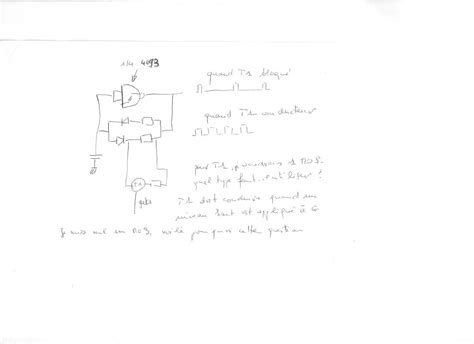 1/4 4093
quand T1 bloqué
quand T1 conducteur
pour T1,
quel type faut-il utiliser ?
T1
T1 doit conduire quand un
gate
niveau haut est appliqué à G
Je suis sur un MOS, voilà pourquoi cette question